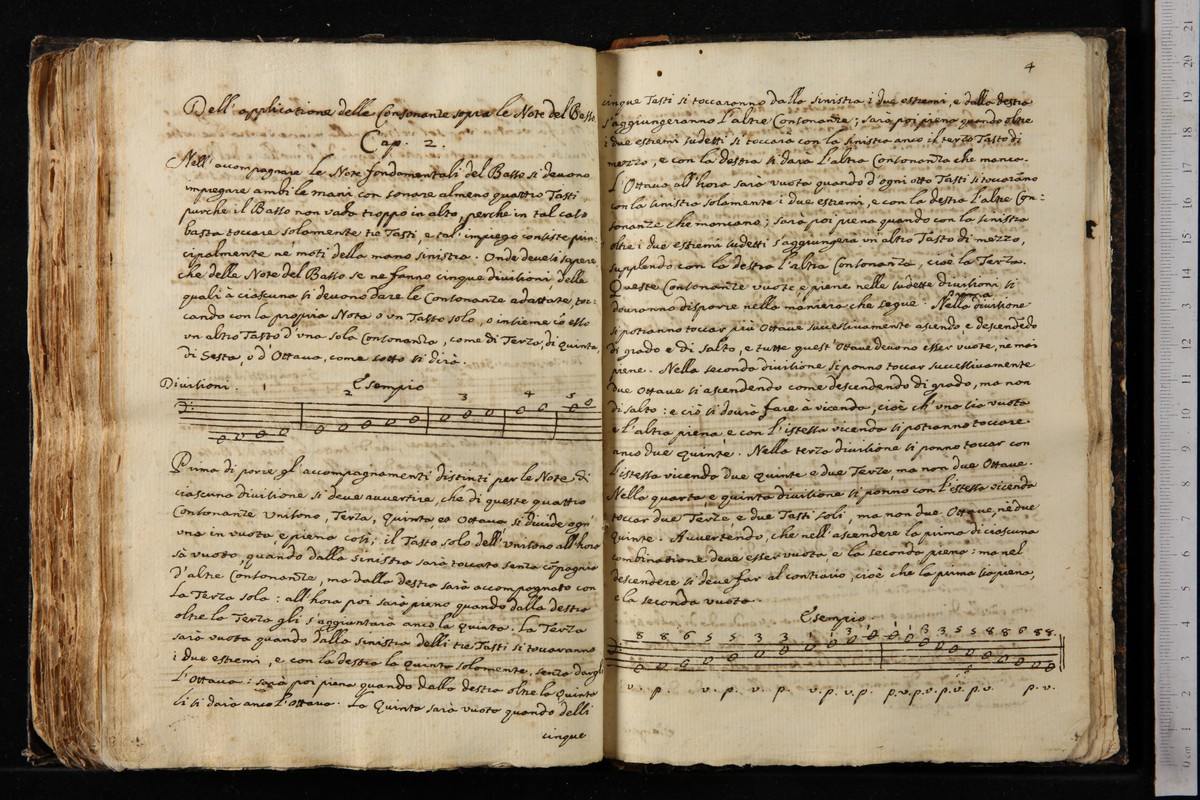 Dell' applicatione delle Consonanze sopra le Note del Basso.
Cap. 2.
Nell' accompagnare le Note fondamentali del Basso si deuono
impiegare ambi le mani con sonare almeno quattro Tasti
purche il Basso non vada troppo in alto, perche in tal caso
basta toccare solamente tre Tasti, e tal' impiego consiste prin:
cipalmente nè moti della mano sinistra. Onde deuesi sapere
che delle Note del Basso se ne fanno cinque diuisioni, delle
quali à ciascuna si deuono dare le Consonanze adattate, toc:
cando con la propria Nota ò vn Tasto solo, o insieme cō esso
vn altro Tasto d'vna sola Consonanza, come di Terza, di Quinta,
di Sesta, ò d'Ottaua, come sotto si dirà.
Diuisioni. 1 2 Esempio 3 4 5
Prima di porre gl' accompagnamenti distinti per le Note di
ciascuna diuisione si deue auuertire, che di queste quattro
Consonanze Vnisono, Terza, Quinta et Ottaua si diuide ogn'
vna in vuota, e piena così; il Tasto solo dell'Vnisono all'hora
sà vuoto, quando dalla sinistra sarà toccato senza cōpagnia
d'altre Consonanze, ma dalla destra sarà accompagnato con
la Terza sola: all'hora poi sarà pieno quando dalla destra
oltre la Terza gli s'aggiuntarà anco la Quinta. La Terza
sarà vuota quando dalla sinistra delli tre Tasti si toccaranno
i due estremi, e con la destra la quinta solamente, senza dargli
l'Ottaua: sarà poi piena quando dalla destra oltre la Quinta
li si darà anco l'Ottaua. La Quinta sarà vuota quando delli
cinque
4
cinque Tasti si toccaranno dalla sinistra i due estremi, e dalla destra
s'aggiungeranno l'altre Consonanze; sarà poi piena quando oltre
i due estremi sudetti si toccarà con la sinistra anco il terzo Tasto di
mezzo, e con la destra si darà l'altra Consonanza che manca.
L'Ottaua all'hora sarà vuota quando d'ogni otto Tasti si toccarāno
con la sinistra solamente i due estremi, e con la destra l'altre Con:
sonanze che mancano; sarà poi piena quando con la sinistra
oltre i due estremi sudetti s'aggiungerà vn altro Tasto di mezzo,
supplendo con la destra l'altra Consonanza, cioè la Terza.
Queste Consonanze vuote e piene nelle sudette diuisioni si
douranno disporre nella maniera che segue. Nella prima diuisione
si potranno toccar più Ottaue successiuamente ascendo e descendēdo
di grado e di salto, e tutte quest' Ottaue deuono esser vuote, nè mai
piene. Nella seconda diuisione si ponno toccar successiuamente
due Ottaue sì ascendendo come descendendo di grado, ma non
di salto: e ciò si dourà fare à vicenda, cioè ch'vna sia vuota
e l'altra piena, e con l'istessa vicenda si potranno toccare
anco due quinte. Nella terza diuisione si ponno toccar con
l'istessa vicenda due Quinte e due Terze, ma non due Ottaue.
Nella quarta, e quinta diuisione si ponno con l'istessa vicenda
toccar due Terze, e due Tasti soli, ma non due Ottaue, nè due
Quinte. Auuertendo, che nell'ascendere la prima di ciascuna
combinatione deue esser vuota e la seconda piena: ma nel
descendere si deue far al contrario, cioè che la prima sia piena,
e la seconda vuota.
Esempio
8 8 6 5 5 3 3 1 1 3 1 1 1 3 3 5 5 8 8 6 8 8.
v. p. v. p. v. p. v. p. v. p. p. v. p. v. p. v. p. v. p. v.